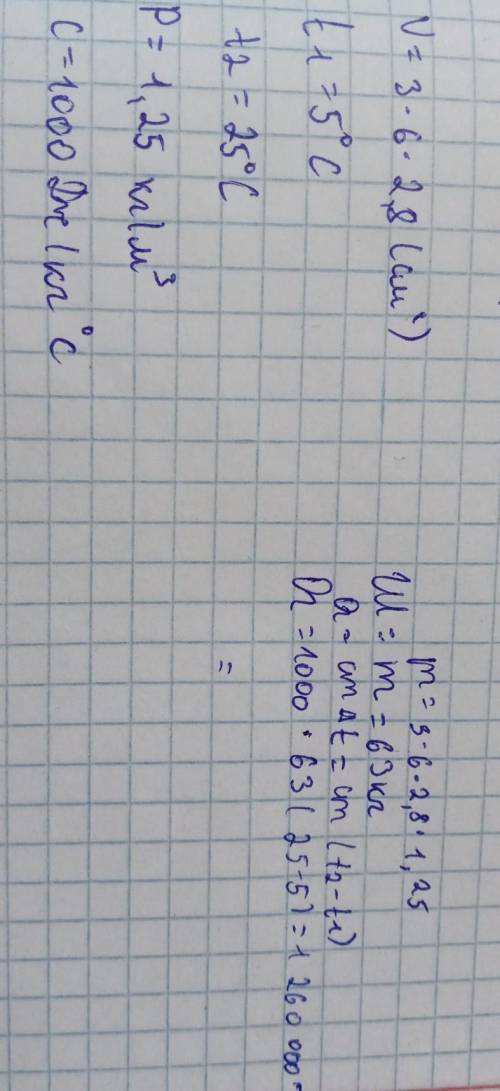 V = 3 · 6 · 2,8 (см³)
t1 = 5°C
t2 = 25°C
P = 1,25 кг/м³
C = 1000 Дж/кг°C
m = 3 · 6 · 2,8 · 1,25
m = 63 кг
Q = cm Δt = cm (t2 - t1)
Q = 1000 · 63 (25-5) = 1 260 000
=